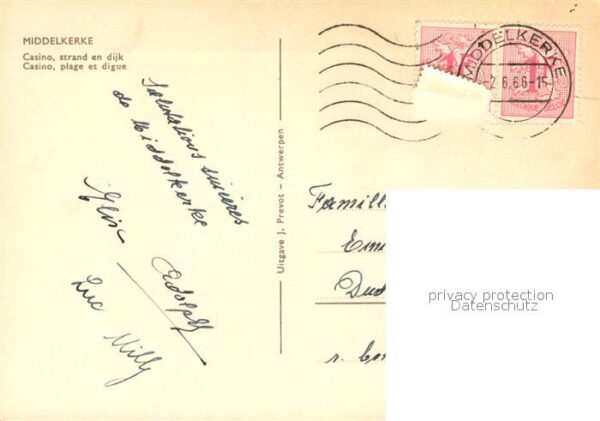 MIDDELKERKE
Casino, strand en dijk
Casino, plage et digue
Salutations sincères
de Middelkerke
Adolphe
Luc Milly
Uitgave J. Prevot — Antwerpen
MIDDELKERKE
-7.6.66-1
Famill
Emi
Dud
r.
privacy protection
Datenschutz